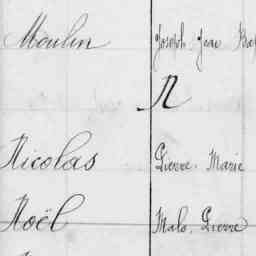 Moulin Joseph Jean
N
Nicolas Pierre Marie
Noël Malo, Pierre